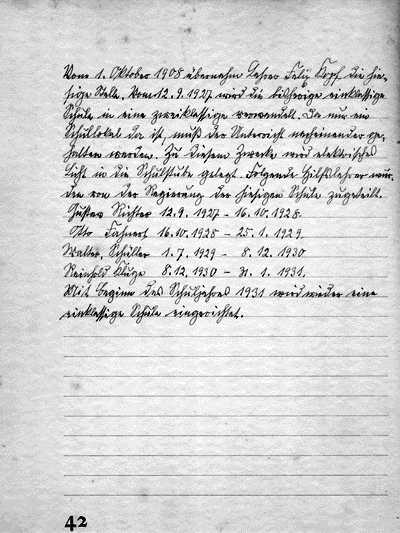 Vom 1. Oktober 1908 übernahm Lehrer Felix Kopf die hie-
sige Stelle. Vom 12.9.1927 wird die bisherige einklassige
Schule in eine zweiklassige verwandelt. Da nur ein
Schullokal da ist, muß der Unterricht nacheinander ge-
halten werden. Zu diesem Zwecke wird elektrisches
Licht in die Schulstube gelegt. Folgende Hilfslehrer wur-
den von der Regierung der hiesigen Schule zugeteilt.
Gustav Richter 12.9.1927 - 16.10.1928.
Otto Fahnert 16.10.1928 - 25.1.1929.
Walter Schüller 1.7.1929 - 8.12.1930
Reinhold Kluge 8.12.1930 - 31.1.1931.
Mit Beginn des Schuljahres 1931 wird wieder eine
einklassige Schule eingerichtet.
42